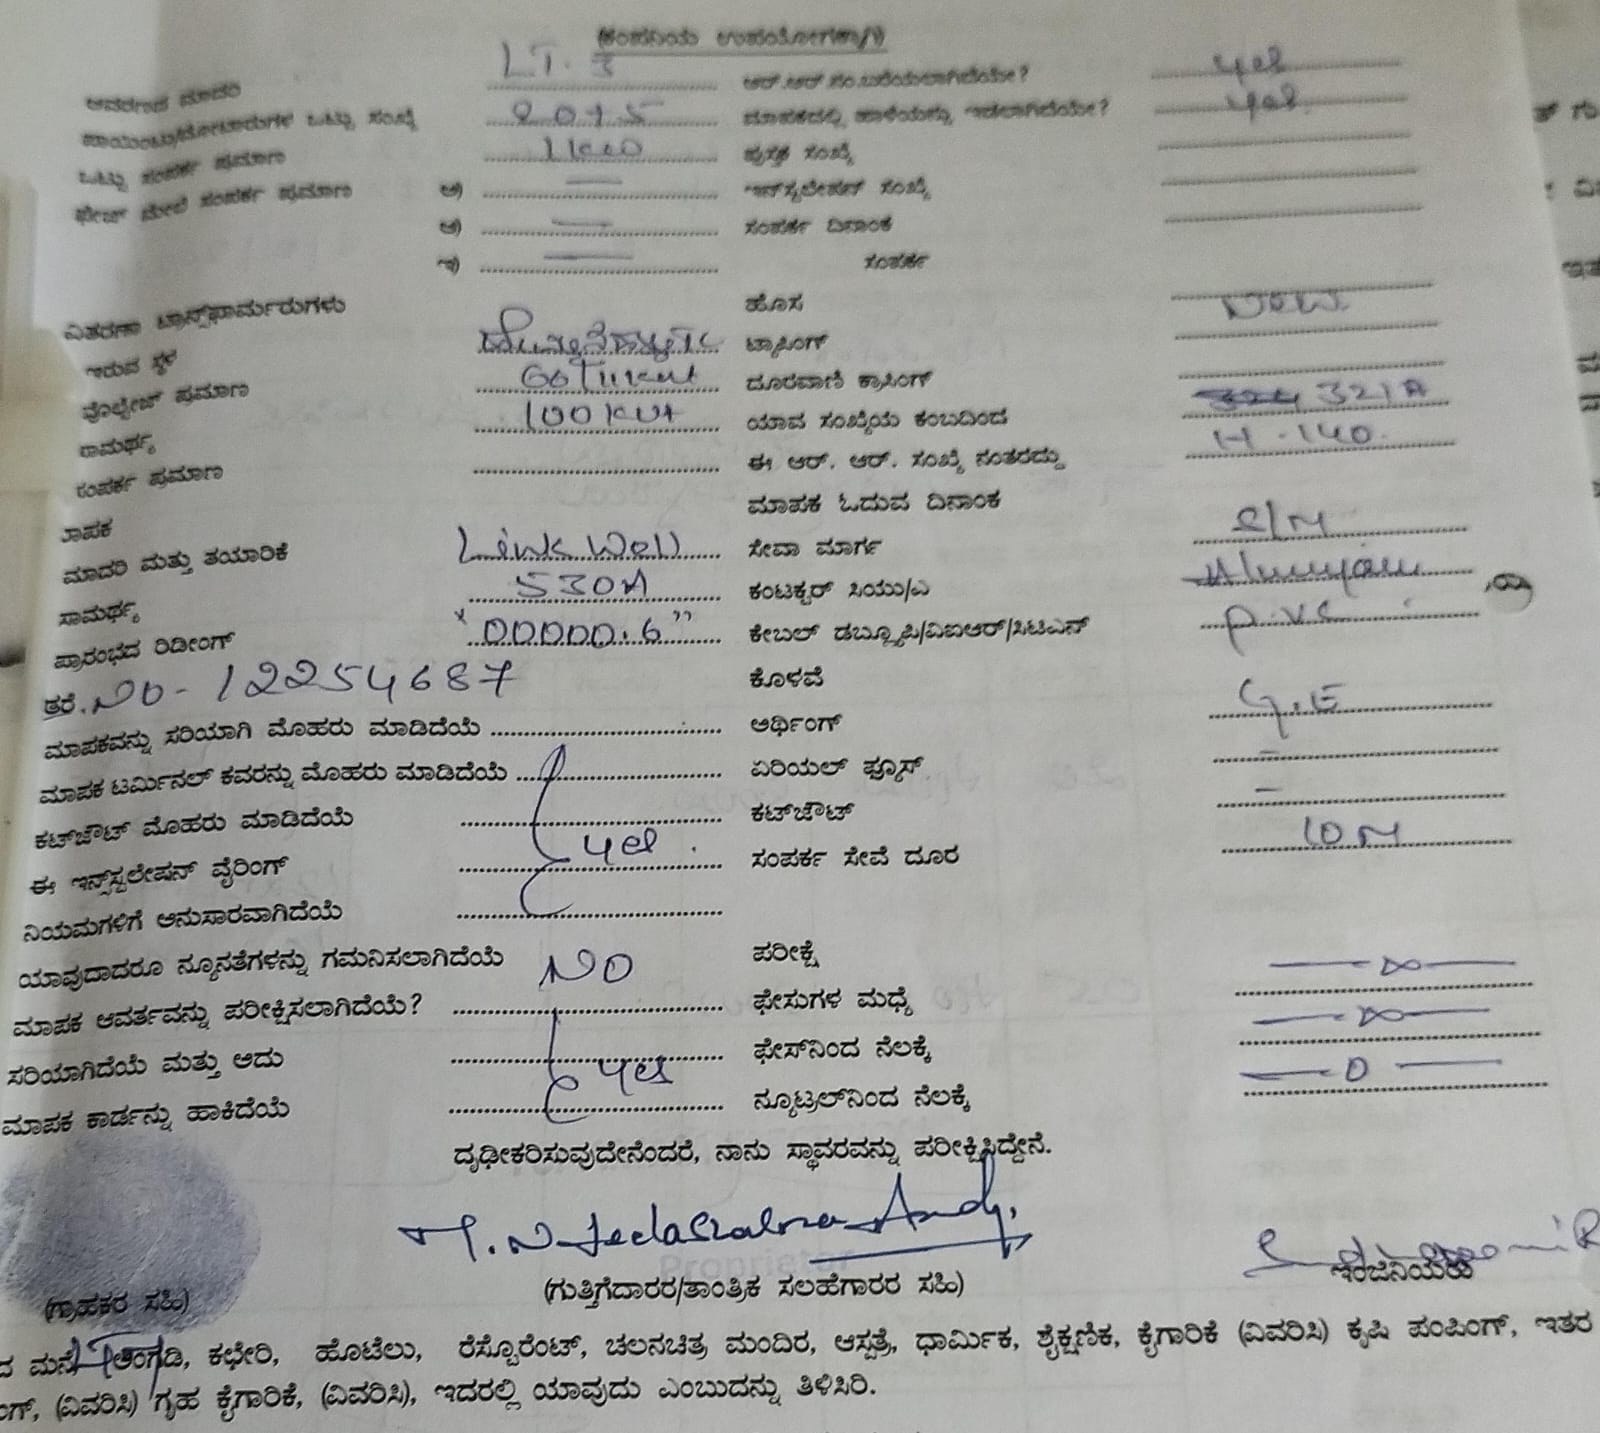 (ಕಂಪನಿಯ ಉಪಯೋಗಕ್ಕಾಗಿ)
ಆವರಣದ ಮಾದರಿ LT. 3 ಆರ್.ಆರ್.ಸಂ.ಬರೆಯಲಾಗಿದೆಯೇ? yes
ಪಾಯಿಂಟು/ಮೋಟಾರುಗಳ ಒಟ್ಟು ಸಂಖ್ಯೆ ಮಾಪಕದಲ್ಲಿ ಹಾಳೆಯನ್ನು ಇಡಲಾಗಿದೆಯೇ? yes
ಒಟ್ಟು ಸಂಪರ್ಕ ಪ್ರಮಾಣ 1 ಪುಸ್ತಕ ಸಂಖ್ಯೆ
ಫೇಜ್ ಮೇಲೆ ಸಂಪರ್ಕ ಪ್ರಮಾಣ ಅ) — ಇನ್‌ಸ್ಟಲೇಷನ್ ಸಂಖ್ಯೆ
ಆ) — ಸಂಪರ್ಕ ದಿನಾಂಕ
ಇ) — ಸಂಪರ್ಕ
ವಿತರಣಾ ಟ್ರಾನ್ಸ್‌ಫಾರ್ಮರುಗಳು ಹೊಸ New
ಇರುವ ಸ್ಥಳ ಟ್ಯಾಪಿಂಗ್
ವೊಲ್ಟೇಜ್ ಪ್ರಮಾಣ ದೂರವಾಣಿ ಕ್ರಾಸಿಂಗ್
ಸಾಮರ್ಥ್ಯ 100 KVA ಯಾವ ಸಂಖ್ಯೆಯ ಕಂಬದಿಂದ 321A
ಸಂಪರ್ಕ ಪ್ರಮಾಣ ಈ ಆರ್. ಆರ್. ಸಂಖ್ಯೆ ನಂತರದ್ದು H-140.
ಮಾಪಕ ಮಾಪಕ ಓದುವ ದಿನಾಂಕ
ಮಾದರಿ ಮತ್ತು ತಯಾರಿಕೆ Link Well ಸೇವಾ ಮಾರ್ಗ S/M
ಸಾಮರ್ಥ್ಯ 530A ಕಂಟಕ್ಟರ್ ಸಿಯು/ಎ
ಪ್ರಾರಂಭದ ರಿಡೀಂಗ್ "00000.6" ಕೇಬಲ್ ಡಬ್ಲ್ಯೂಪಿ/ವಿಐಆರ್/ಸಿಟಿಎಸ್ P.V.C
ತ್ರರೆ. NO - 12254687 ಕೊಳವೆ
ಮಾಪಕವನ್ನು ಸರಿಯಾಗಿ ಮೊಹರು ಮಾಡಿದೆಯೆ ಅರ್ಥಿಂಗ್ G.E
ಮಾಪಕ ಟರ್ಮಿನಲ್ ಕವರನ್ನು ಮೊಹರು ಮಾಡಿದೆಯೆ ಏರಿಯಲ್ ಫ್ಯೂಸ್ -
ಕಟ್‌ಔಟ್ ಮೊಹರು ಮಾಡಿದೆಯೆ ಕಟ್‌ಔಟ್ -
ಈ ಇನ್ಸ್‌ಸ್ಟಲೇಷನ್ ವೈರಿಂಗ್ yes ಸಂಪರ್ಕ ಸೇವೆ ದೂರ 10 M
ನಿಯಮಗಳಿಗೆ ಅನುಸಾರವಾಗಿದೆಯೆ
ಯಾವುದಾದರೂ ನ್ಯೂನತೆಗಳನ್ನು ಗಮನಿಸಲಾಗಿದೆಯೆ NO ಪರೀಕ್ಷೆ
ಮಾಪಕ ಆವರ್ತವನ್ನು ಪರೀಕ್ಷಿಸಲಾಗಿದೆಯೆ? ಫೇಸುಗಳ ಮಧ್ಯೆ — ∞ —
ಸರಿಯಾಗಿದೆಯೆ ಮತ್ತು ಅದು yes ಫೇಸ್‌ನಿಂದ ನೆಲಕ್ಕೆ — ∞ —
ಮಾಪಕ ಕಾರ್ಡನ್ನು ಹಾಕಿದೆಯೆ ನ್ಯೂಟ್ರಲ್‌ನಿಂದ ನೆಲಕ್ಕೆ — 0 —
ದೃಢೀಕರಿಸುವುದೇನೆಂದರೆ, ನಾನು ಸ್ಥಾವರವನ್ನು ಪರೀಕ್ಷಿಸಿದ್ದೇನೆ.
Proprietor
(ಗ್ರಾಹಕರ ಸಹಿ) (ಗುತ್ತಿಗೆದಾರರ/ತಾಂತ್ರಿಕ ಸಲಹೆಗಾರರ ಸಹಿ) ಇಂಜಿನಿಯರು
ದ ಮನೆ, ಅಂಗಡಿ, ಕಛೇರಿ, ಹೊಟೆಲು, ರೆಸ್ಟೊರೆಂಟ್, ಚಲನಚಿತ್ರ ಮಂದಿರ, ಆಸ್ಪತ್ರೆ, ಧಾರ್ಮಿಕ, ಶೈಕ್ಷಣಿಕ, ಕೈಗಾರಿಕೆ (ವಿವರಿಸಿ) ಕೃಷಿ ಪಂಪಿಂಗ್, ಇತರ
ಂಗ್, (ವಿವರಿಸಿ) ಗೃಹ ಕೈಗಾರಿಕೆ, (ವಿವರಿಸಿ), ಇದರಲ್ಲಿ ಯಾವುದು ಎಂಬುದನ್ನು ತಿಳಿಸಿರಿ.